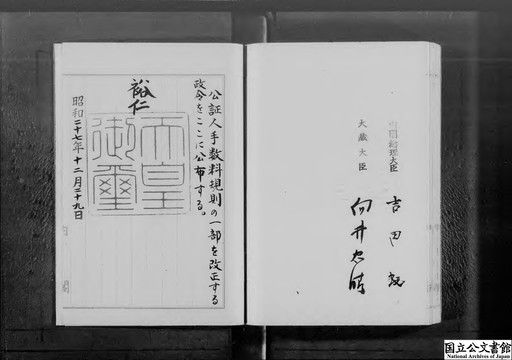 内閣総理大臣 吉田茂
大蔵大臣 向井忠晴
公証人手数料規則の一部を改正する
政令をここに公布する。
裕仁
天皇
御璽
昭和二十七年十二月二十九日
国立公文書館
National Archives of Japan